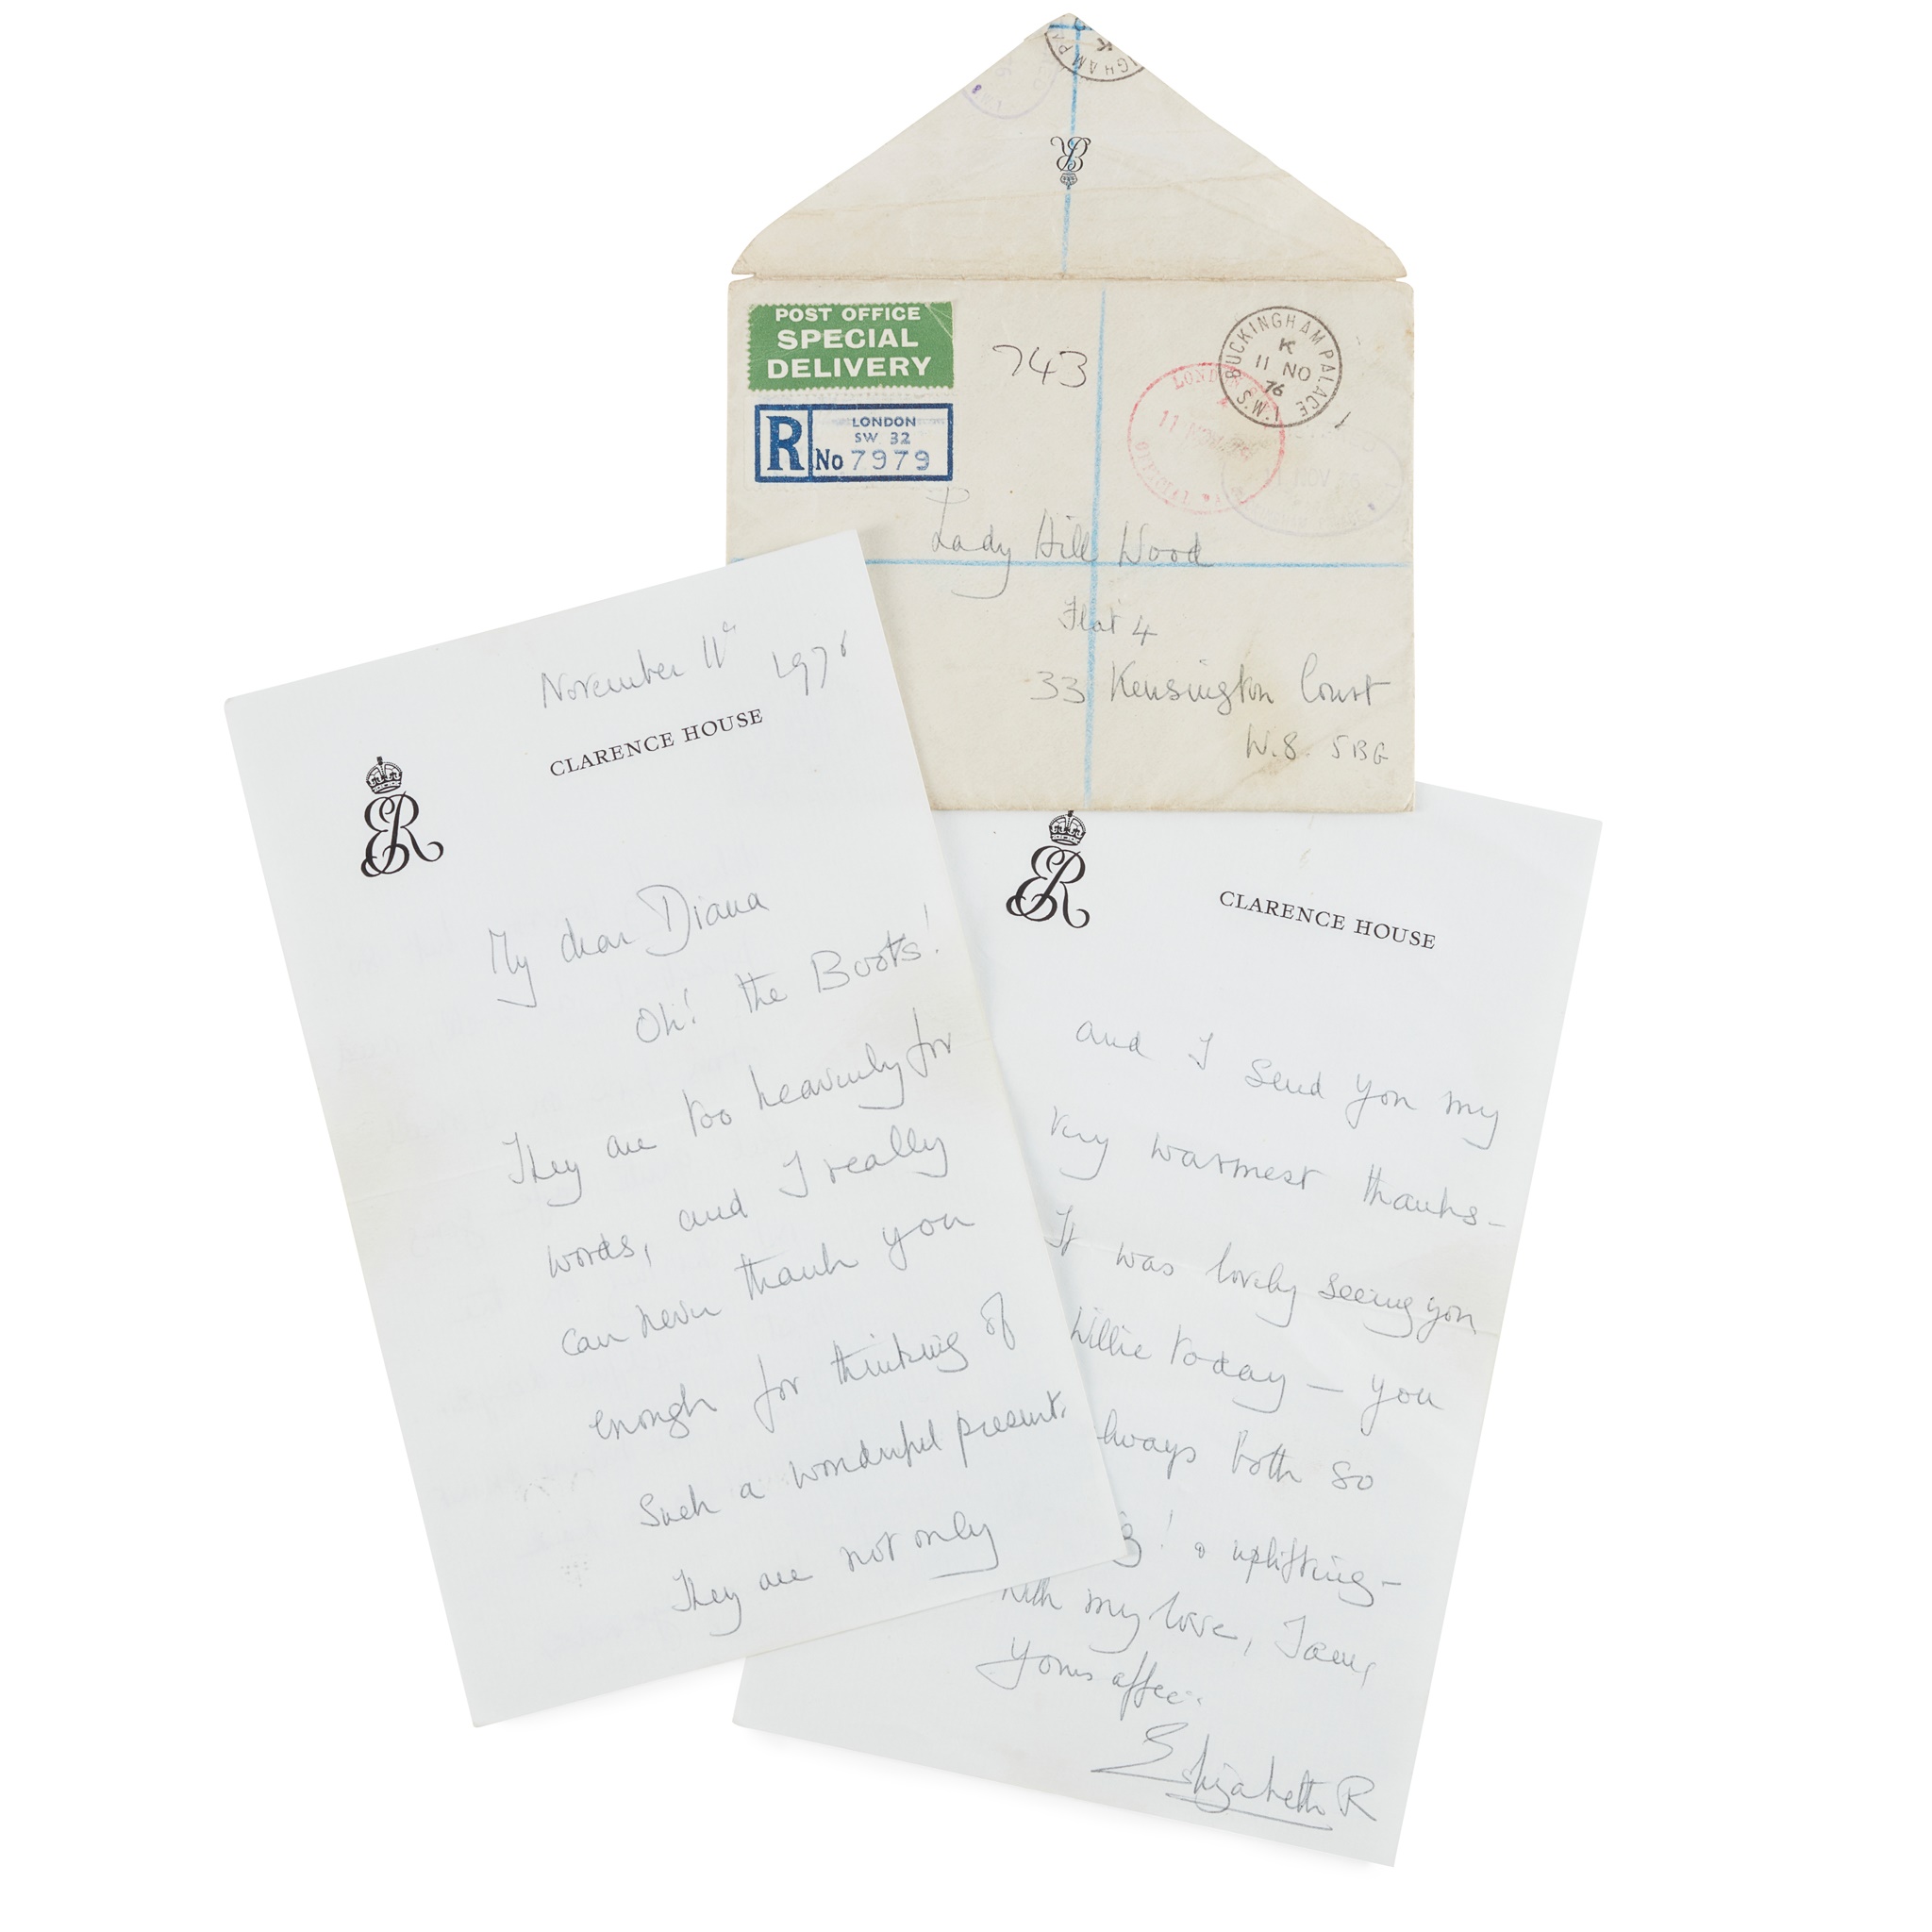 BUCKINGHAM PALACE
K
11 NO
76
S.W.1
POST OFFICE
SPECIAL
DELIVERY
743
R
LONDON
SW 32
No 7979
LONDON
Lady Hill Wood
Flat 4
33 Kensington Court
W.8. 5BG
November 11th 1976
CLARENCE HOUSE
ER
My dear Diana
Oh! the Boots!
They are too heavenly for
words, and I really
can never thank you
enough for thinking of
Such a wonderful present.
They are not only
ER
CLARENCE HOUSE
and I send you my
very warmest thanks -
It was lovely seeing you
Willie today - you
always both so
! & uplifting -
with my love, I am,
yours affec:
Elizabeth R